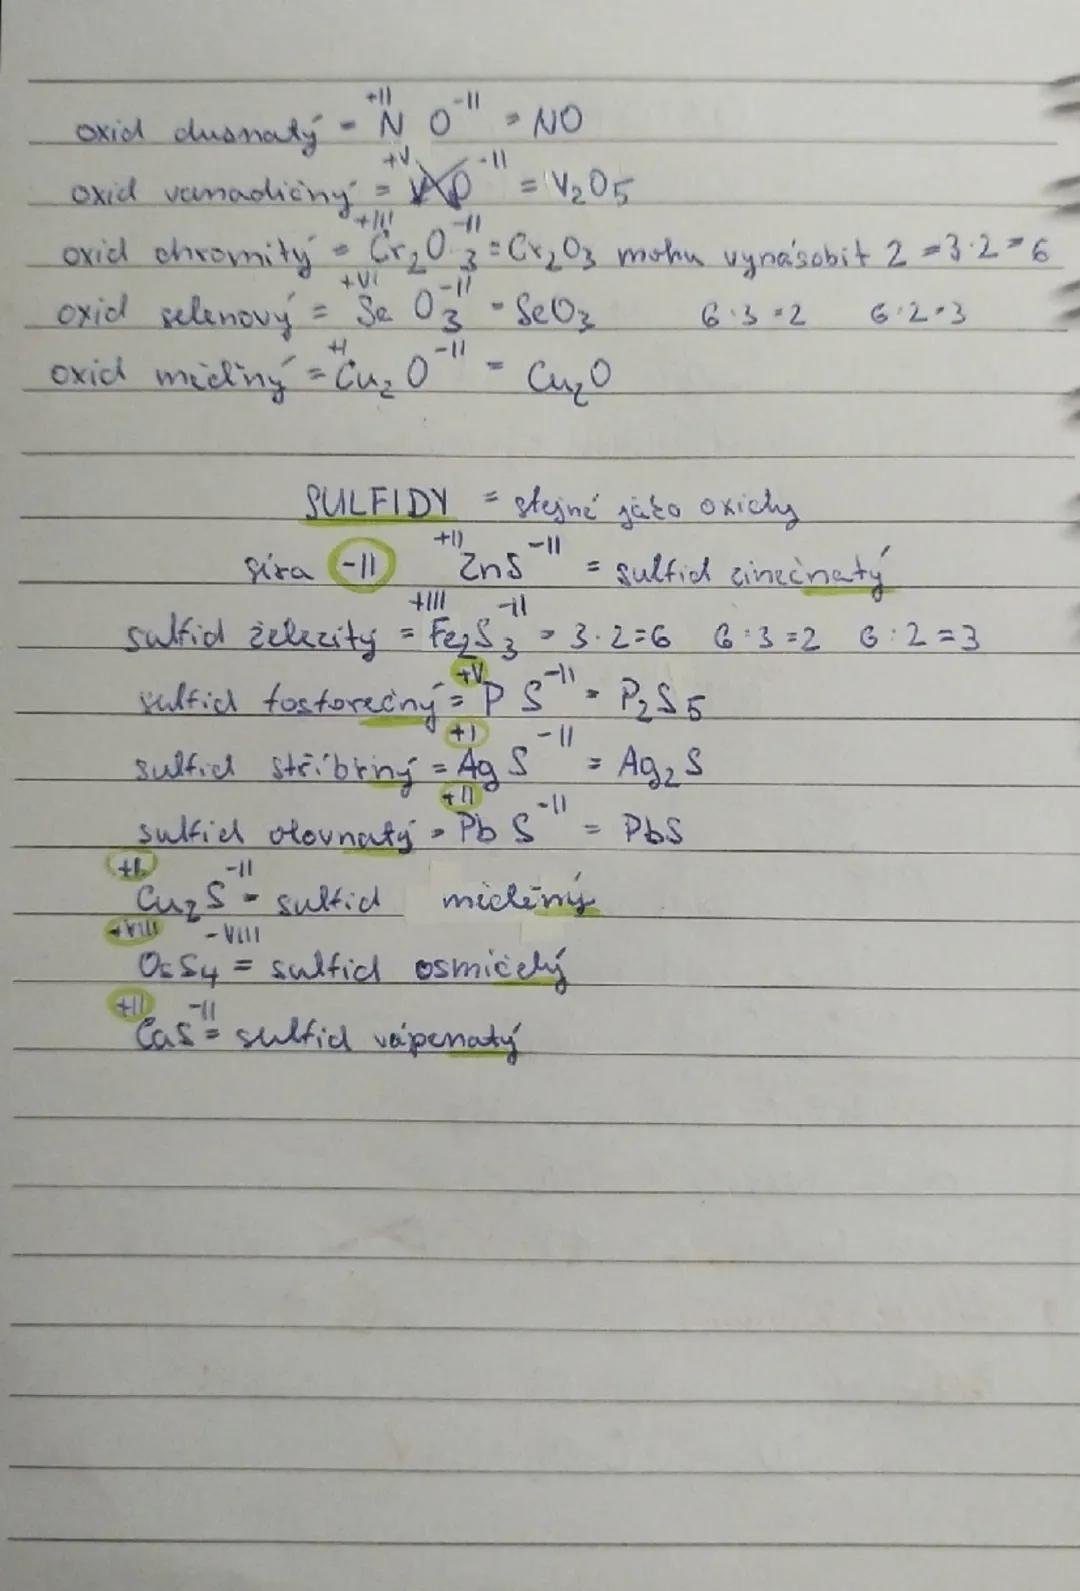 oxid dusnatý = N^+II O^-II = NO
oxid vanadičný = V^+V O^-II = V2O5
oxid chromitý = Cr2^+III O3^-II = Cr2O3 mohu vynásobit 2 = 3·2 = 6
oxid selenový = Se^+VI O3^-II = SeO3 6:3=2 6:2=3
oxid měďný = Cu2^+I O^-II = Cu2O
SULFIDY = stejné jako oxidy
síra -II Zn^+II S^-II = sulfid zinečnatý
sulfid železitý = Fe2^+III S3^-II = 3·2=6 6:3=2 6:2=3
sulfid fosforečný = P^+V S^-II = P2S5
sulfid stříbrný = Ag^+I S^-II = Ag2S
sulfid olovnatý = Pb^+II S^-II = PbS
Cu2^+I S^-II = sulfid měděný
Os^+VIII S4^-VIII = sulfid osmičelý
Ca^+II S^-II = sulfid vápenatý